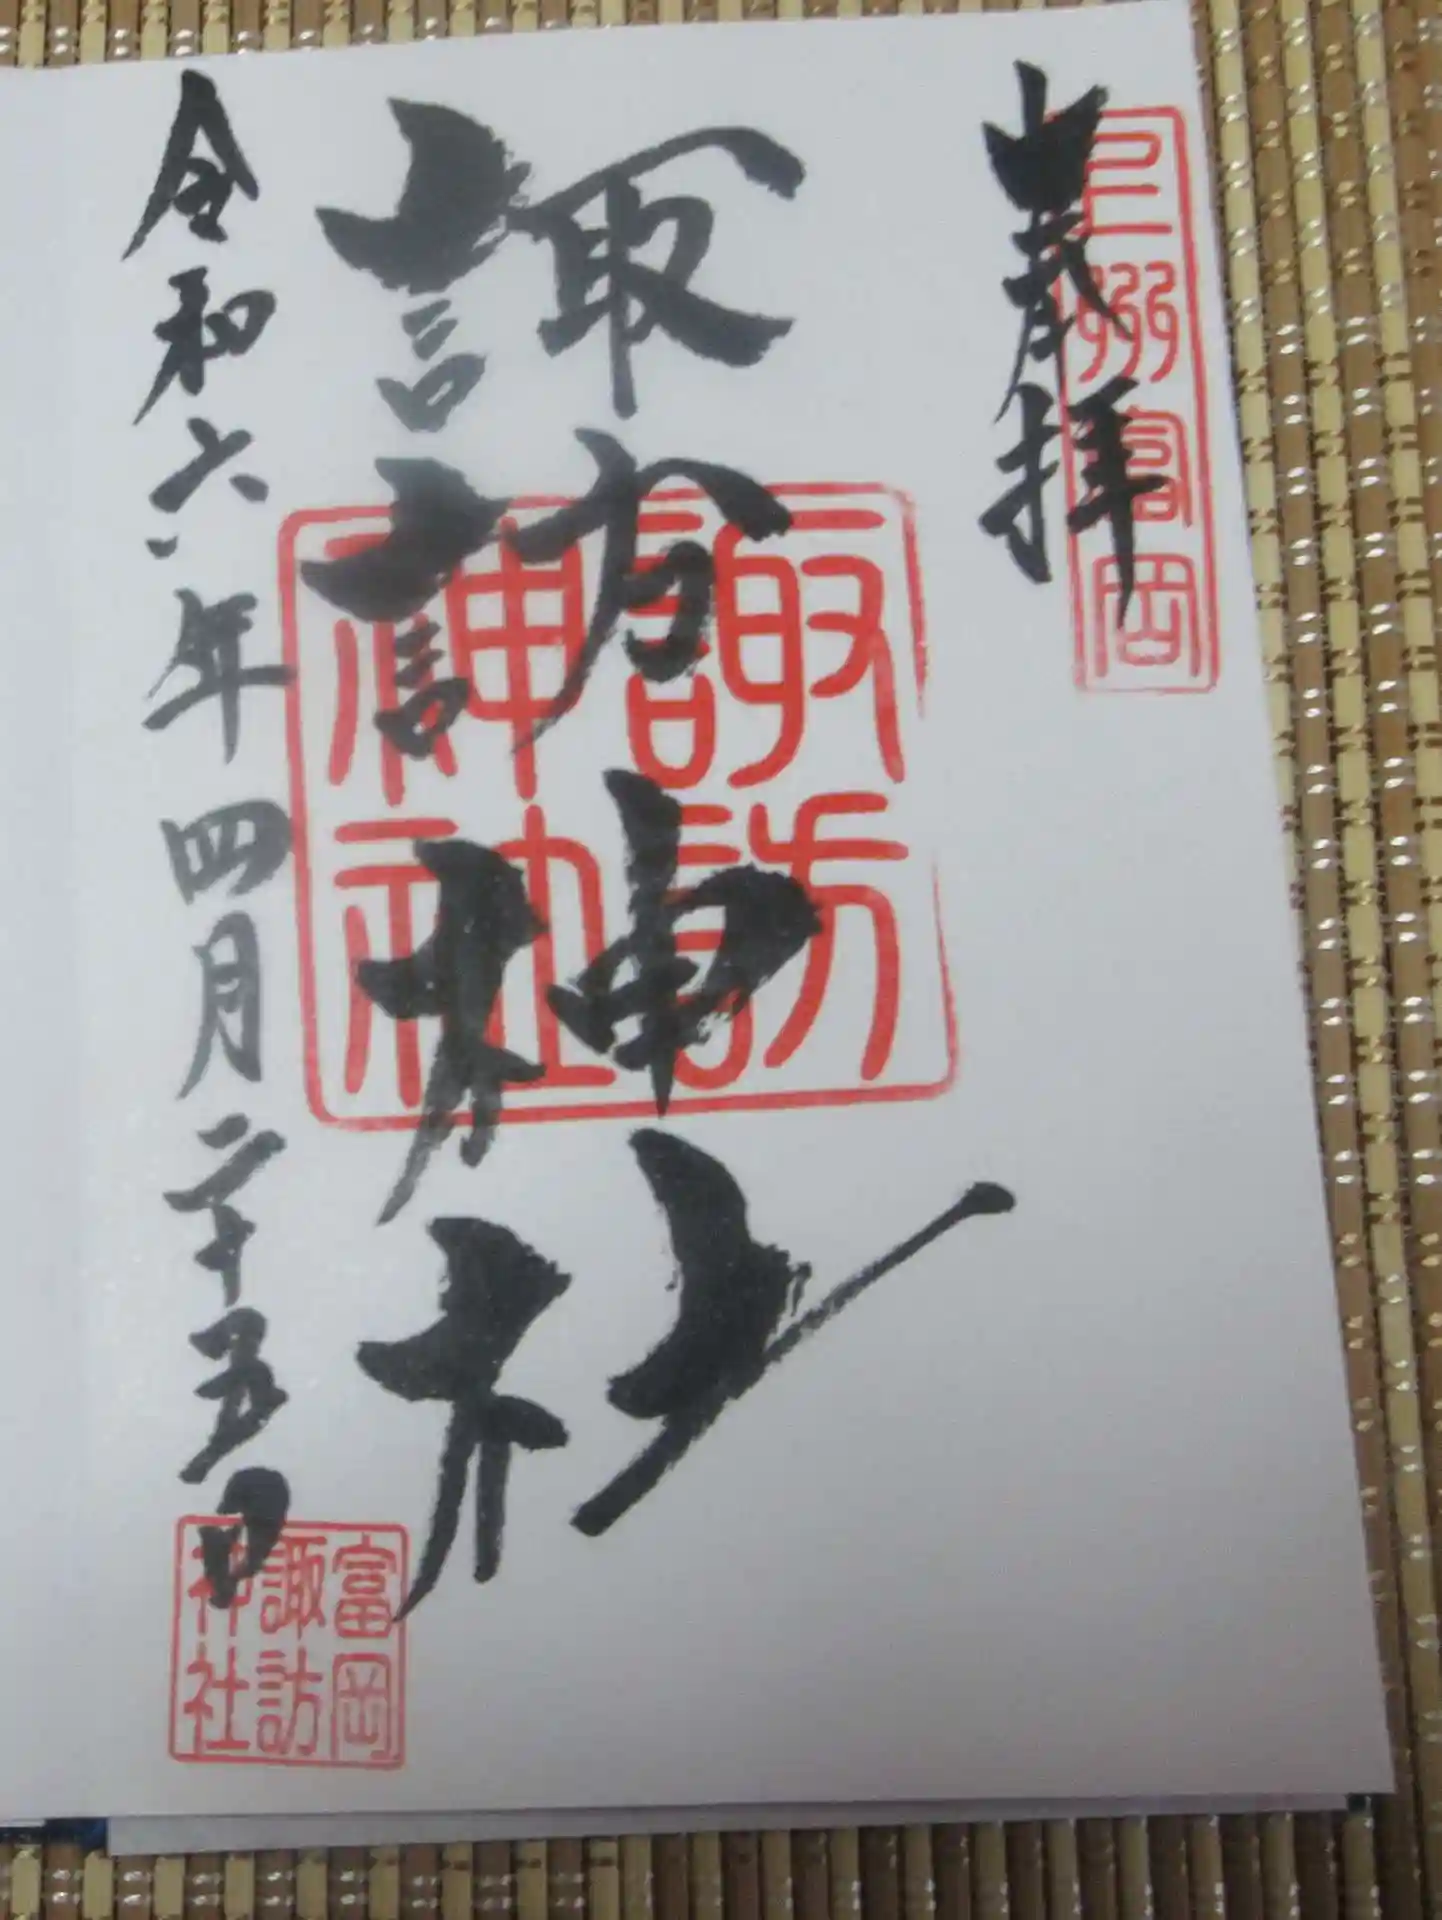 奉拝
上州富岡
諏訪神社
諏訪
神社
令和六年四月二十五日
富岡
諏訪
神社